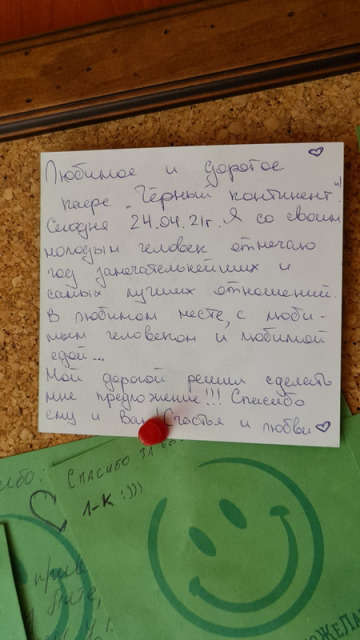 Любимое и дорогое
кафе "Чёрный континент"!
Сегодня 24.04.21г. Я со своим
молодым человек отмечаю
год замечательнейших и
самых лучших отношений.
В любимом месте, с люби-
мым человеком и любимой
едой...
Мой дорогой решил сделать
мне предложение!!! Спасибо
ему и Вам! Счастья и любви
Спасибо за
1-к :)))